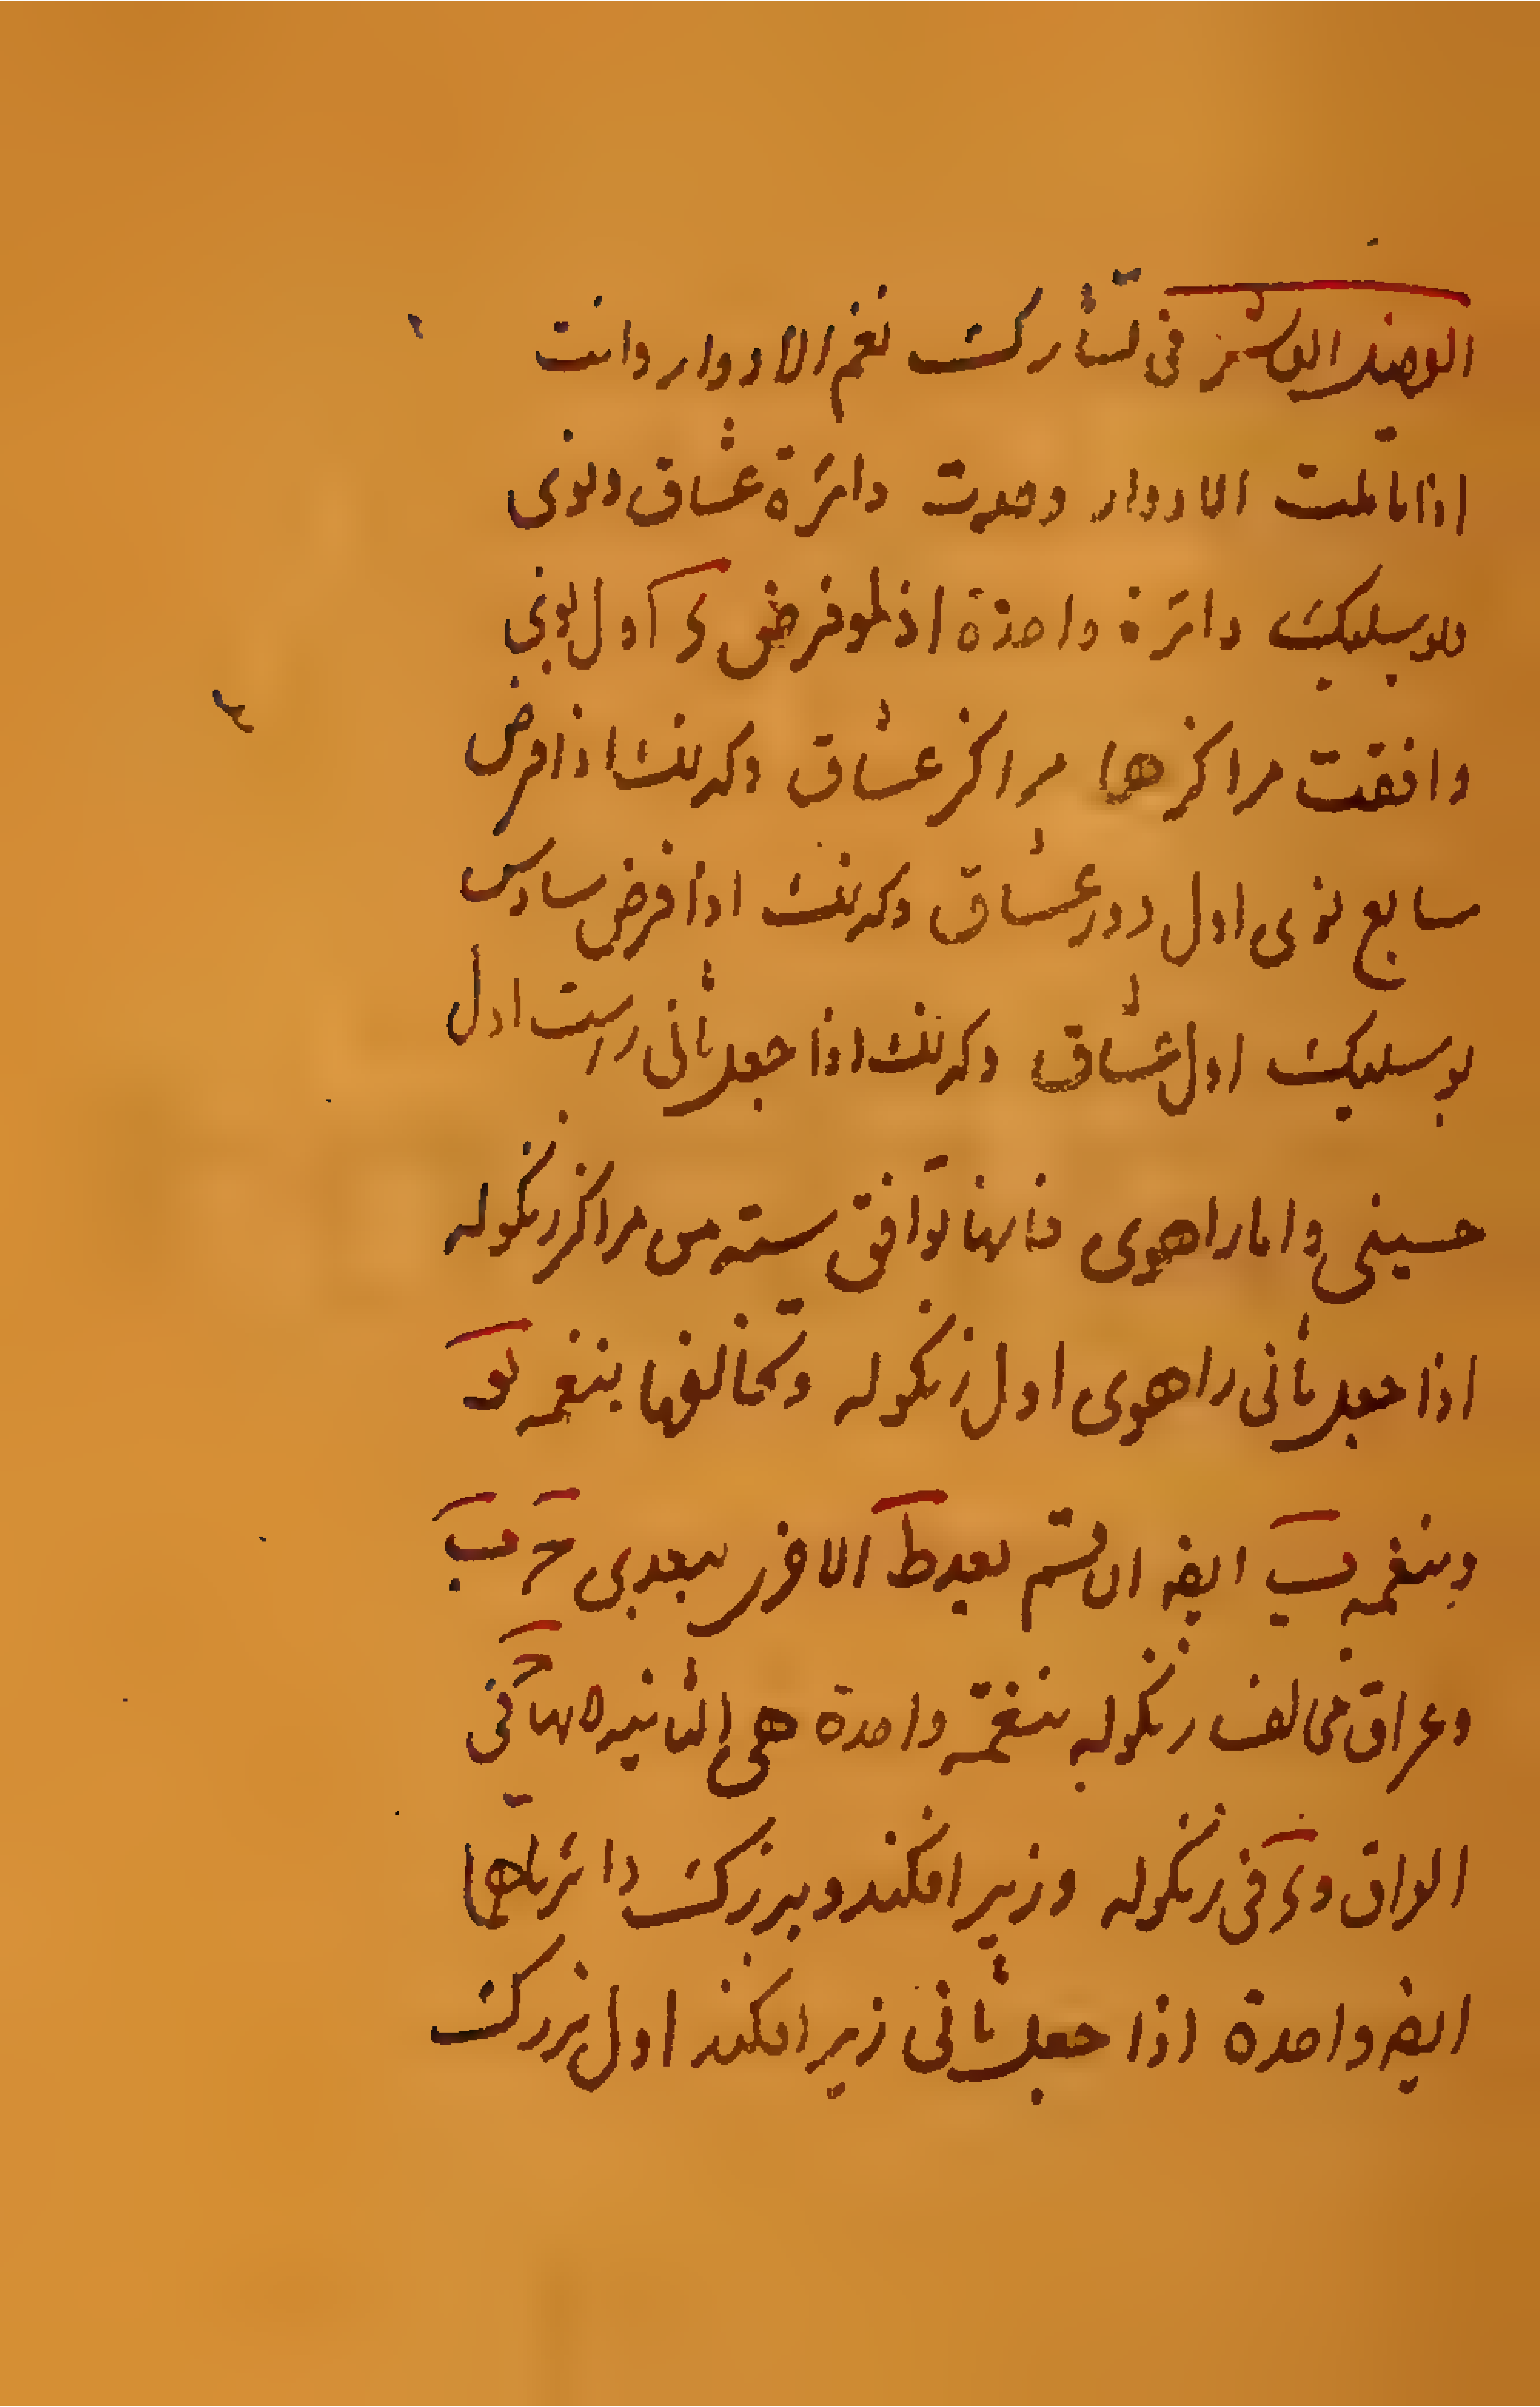 الفصل العاشر في تشارك نغم الادوار وانت
اذا تاملت الادوار وجدت دائرة عشاق ونوى
وبوسليك دائرة واحدة اذ لو فرض آ اول نوى
وافقت مراكزها مراكز عشاق وكذلك اذا فرض
سابع نوى اول دور عشاق وكذلك اذا فرض سادس
بوسليك اول عشاق وكذلك اذا جعل ثاني راست اول
حسيني واما راهوى فانها توافق ستة من مراكز زنكوله
اذا جعل ثاني راهوى اول زنكوله وتخالفها بنغمة
وبنغمة يب ايضا ان قسم بعد ط الاخر ببعدى ج ب
وعراق يخالف زنكوله بنغمة واحدة هى الثانية لانها في
العراق و في زنكوله وزير افكند وبزرك دائرتاها
ايضا واحدة اذا جعل ثاني زير افكند اول بزرك